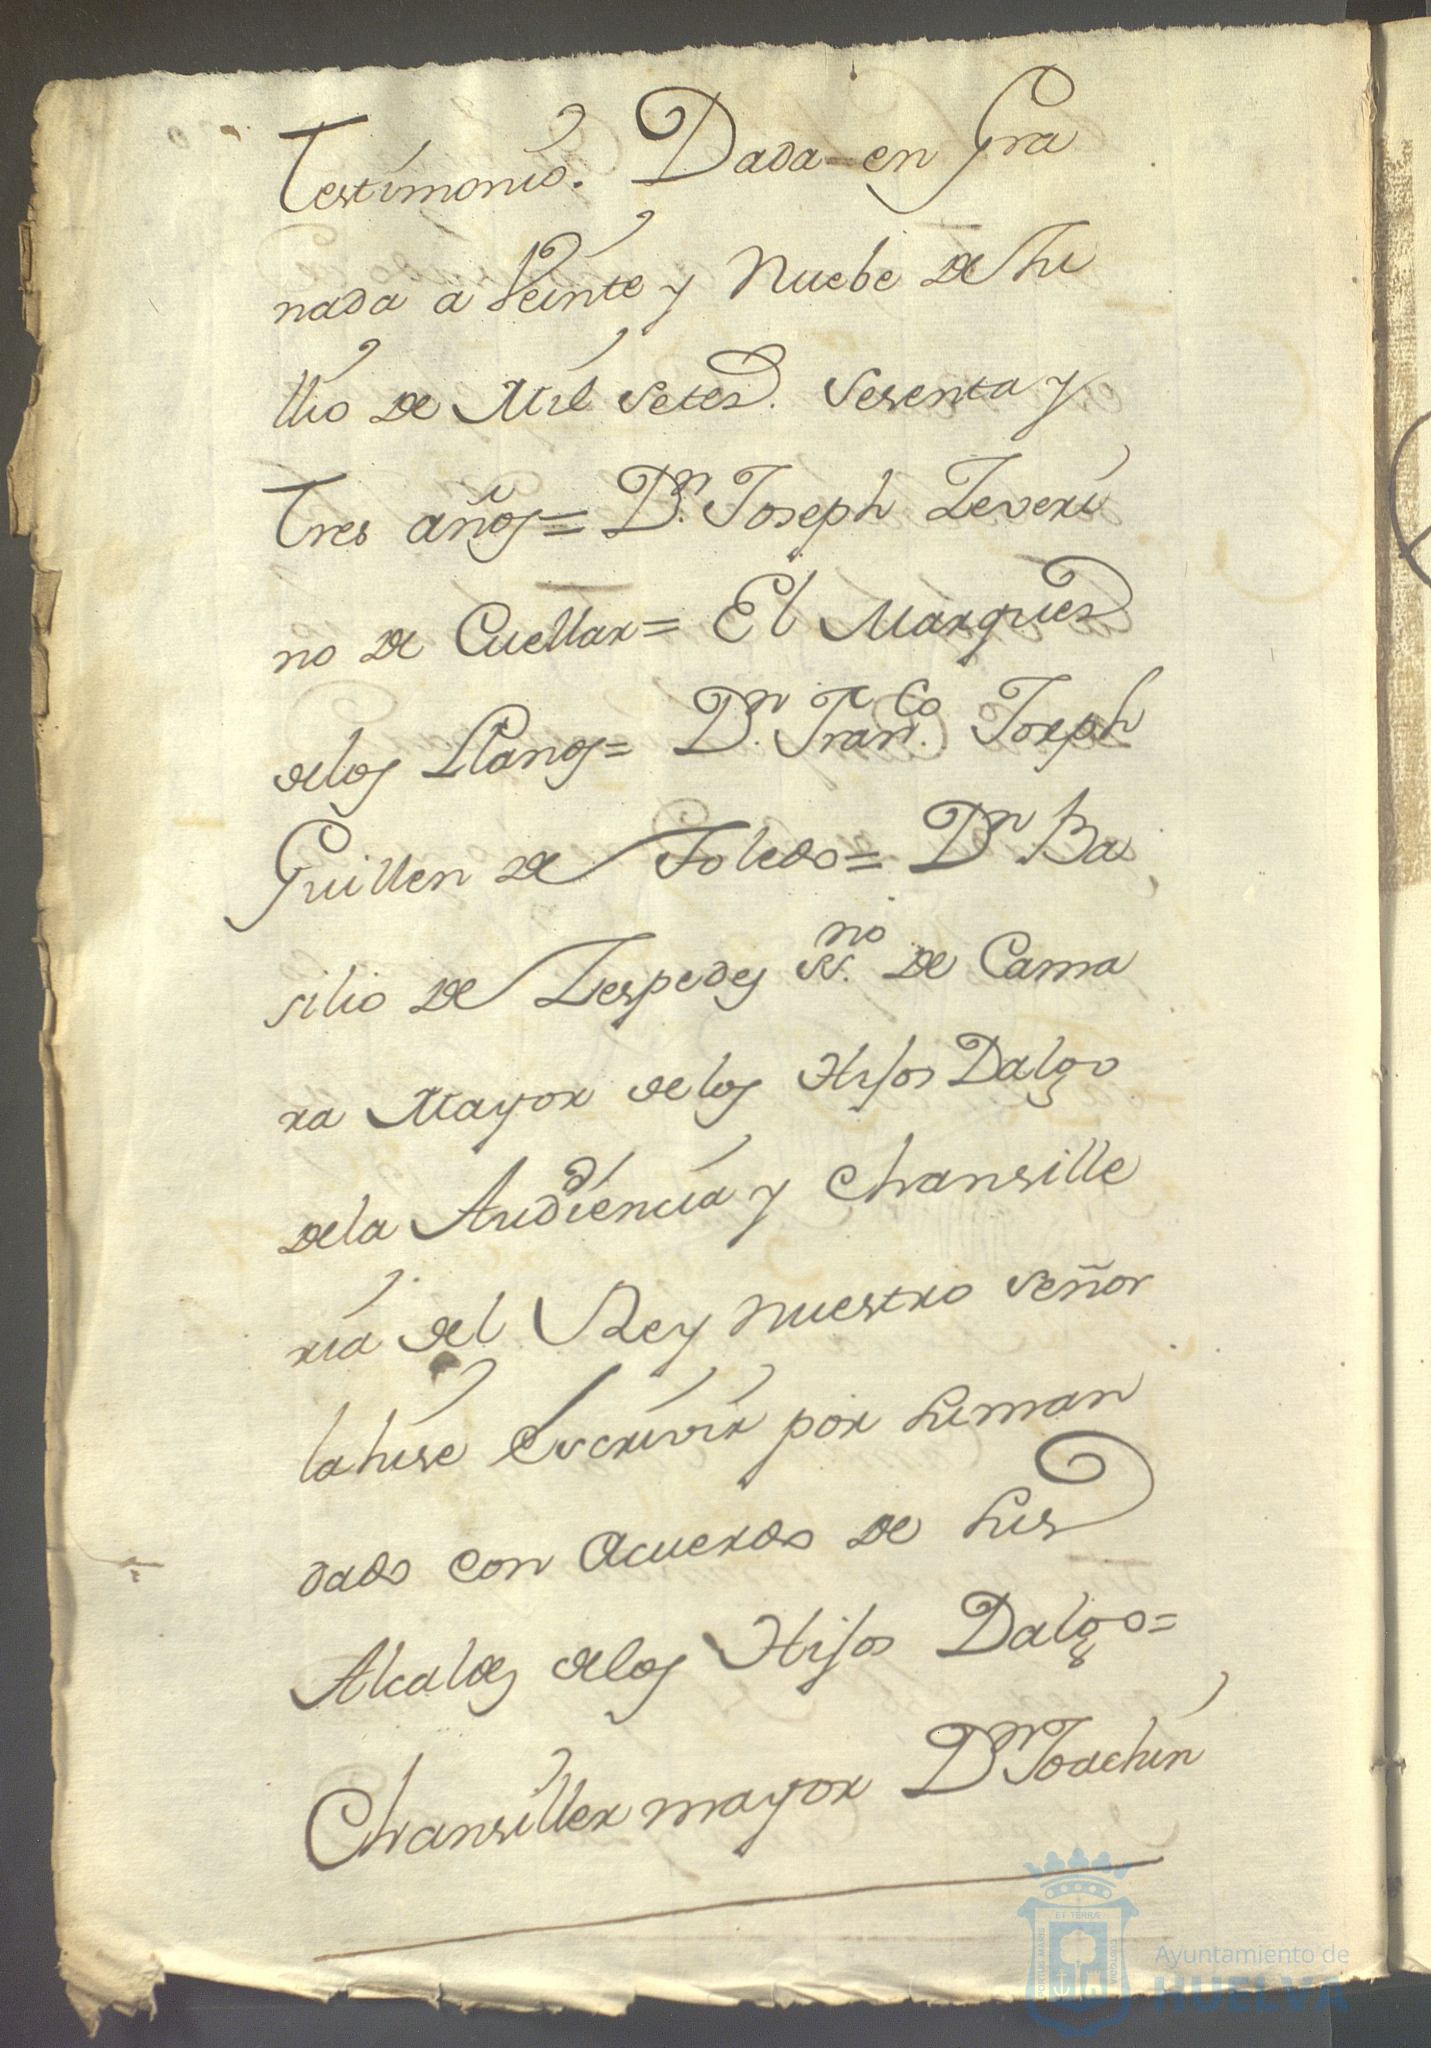 Testimonio. Dada en Gra
nada a Veinte y Nuebe de Ju
llio de Mil Setes. Sesenta y
Tres años= Dn. Joseph Zeveri
no de Cuellar= El Marques
delos Llanos= Dn. Franco. Joseph
Guillen de Toledo= Dn Ba
silio de Zespedes ssno. de Cama
ra Mayor delos Hijos Dalgo
dela Audiencia y Chansille
ria del Rey nuestro señor
la hise Escrivir por suman
dado con Acuerdo de sus
Alcaldes delos Hijos Dalgo=
Chansiller mayor Dn Joachin
Ayuntamiento de
HUELVA